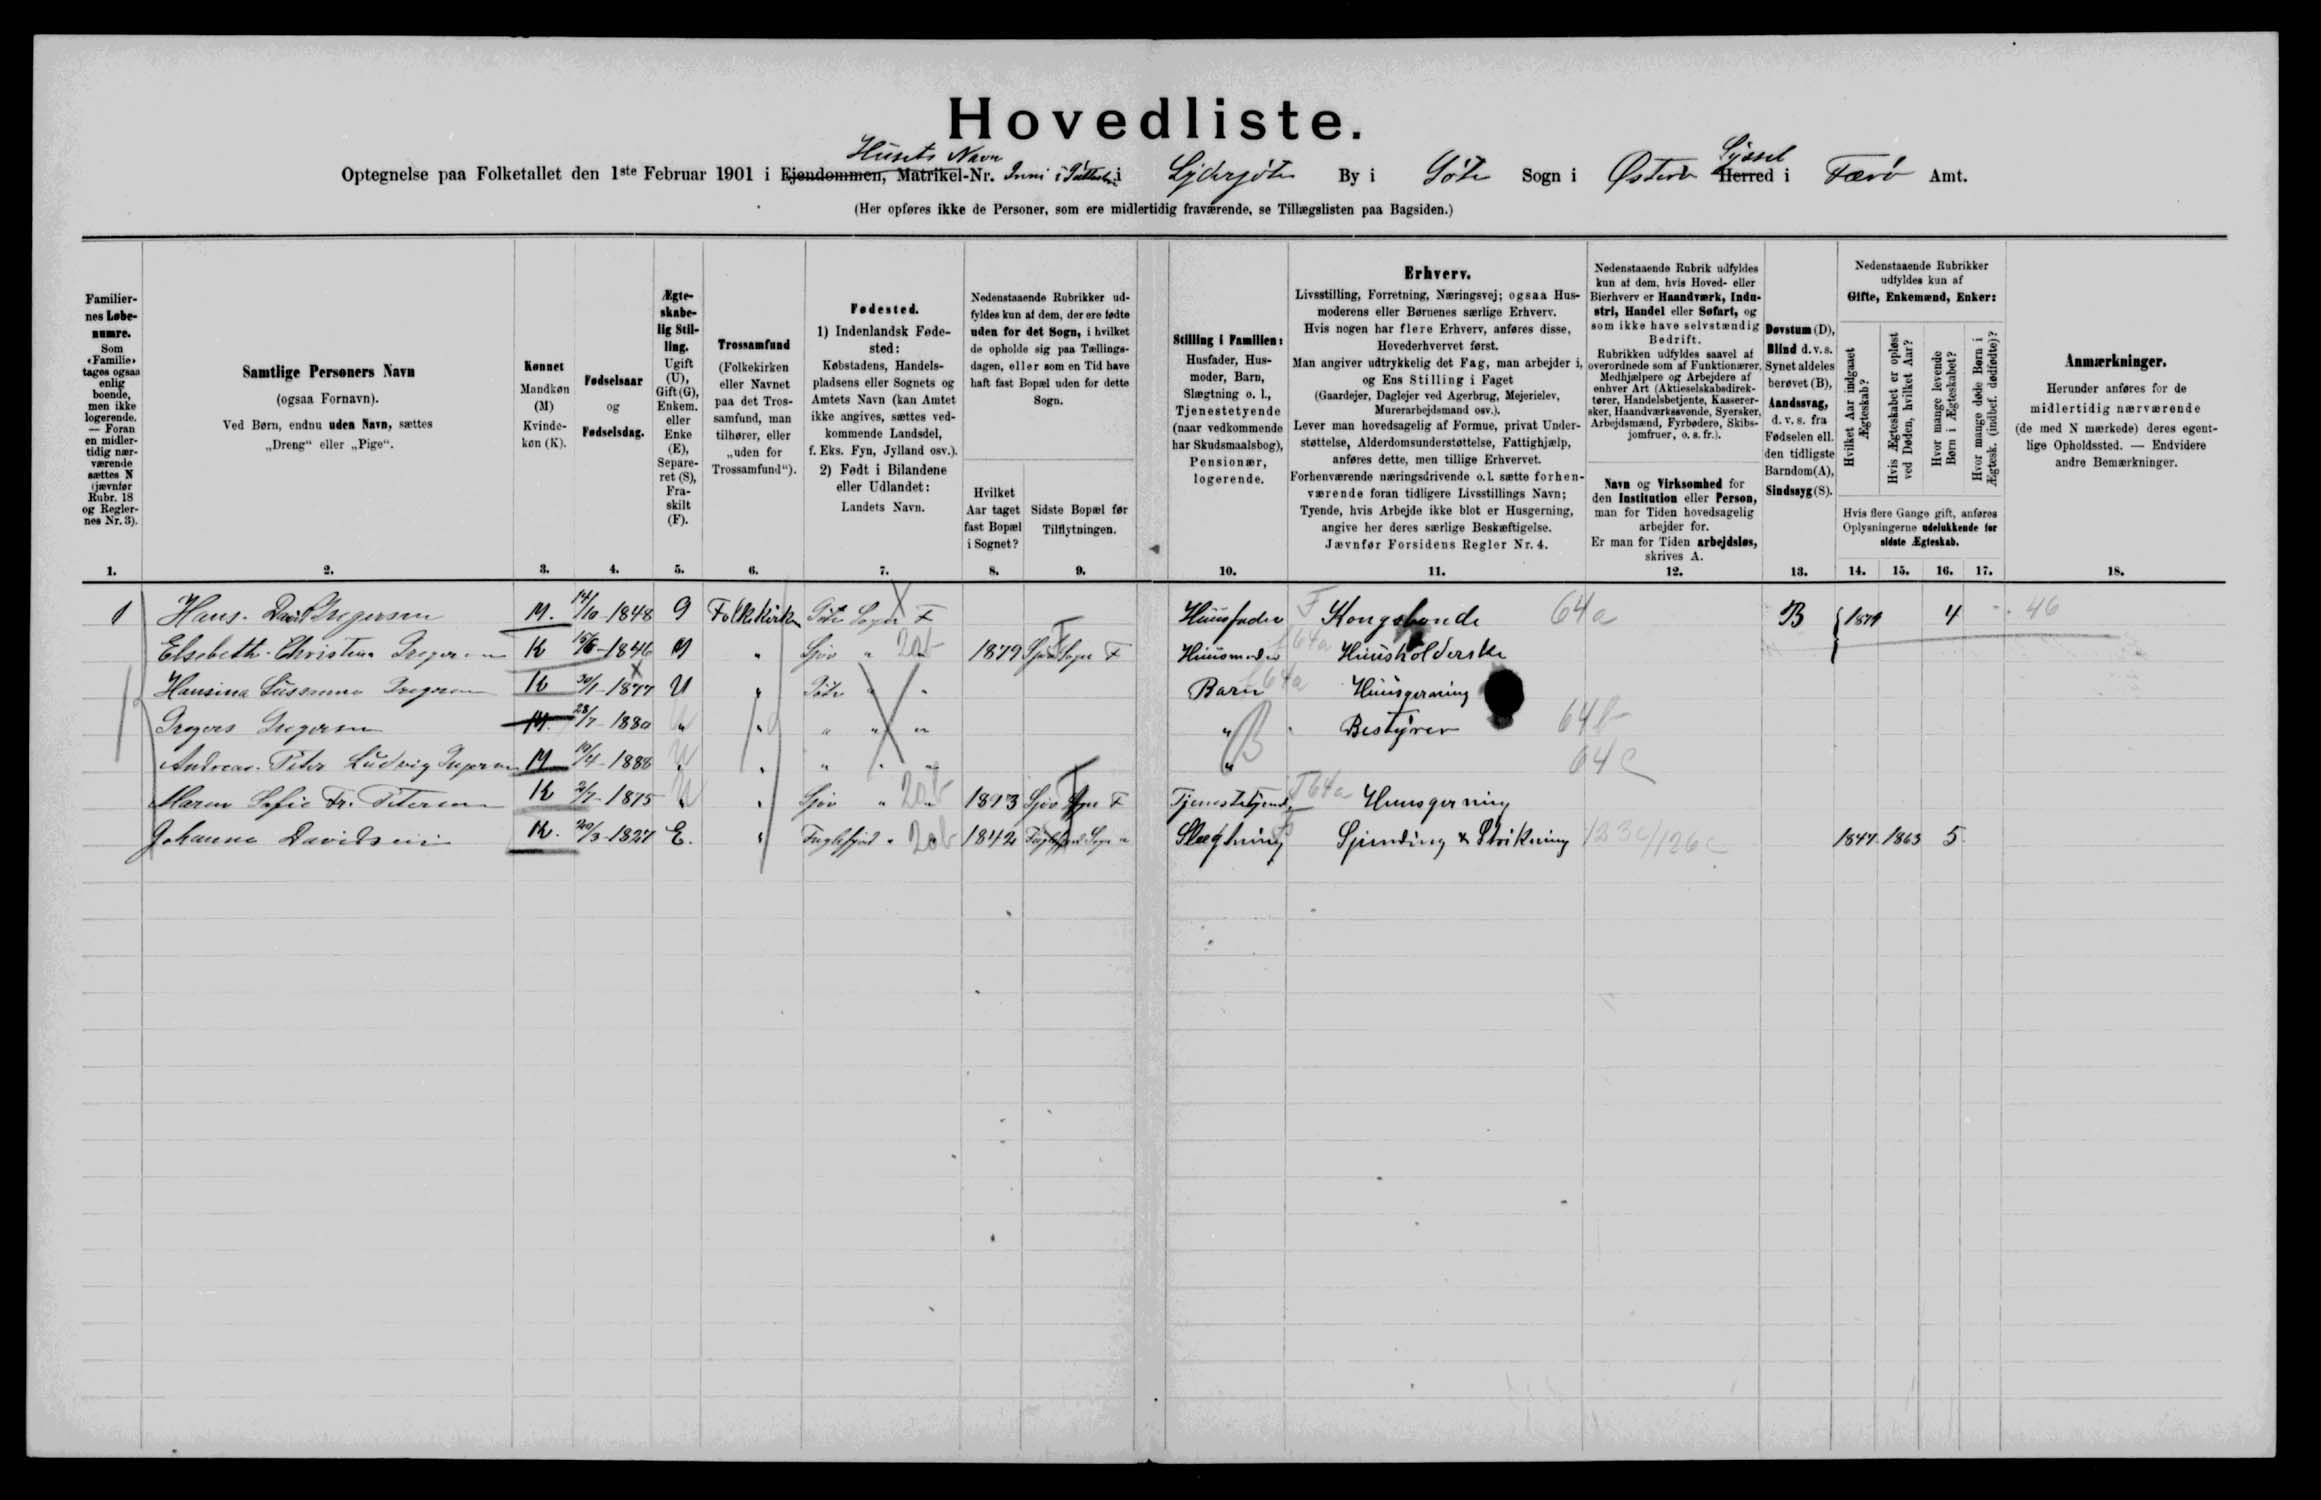 Hovedliste.
Husets Navn Syssel
Optegnelse paa Folketallet den 1ste Februar 1901 i Ejendommen, Matrikel-Nr. Inni i i Sydergöte By i Göte Sogn i Österö Herred i Færö Amt.
(Her opføres ikke de Personer, som ere midlertidig fraværende, se Tillægslisten paa Bagsiden.)
Familiernes Løbenumre.
Som «Familie» tages ogsaa enlig boende, men ikke logerende. — Foran en midlertidig nærværende sættes N (jævnfør Rubr. 18 og Reglernes Nr. 3).
Samtlige Personers Navn
(ogsaa Fornavn).
Ved Børn, endnu uden Navn, sættes
„Dreng“ eller „Pige“.
Kønnet
Mandkøn (M)
Kvindekøn (K).
Fødselsaar
og
Fødselsdag.
Ægteskabelig Stilling.
Ugift (U), Gift (G), Enkem. eller Enke (E), Separeret (S), Fraskilt (F).
Trossamfund
(Folkekirken eller Navnet paa det Trossamfund, man tilhører, eller „uden for Trossamfund“).
Fødested.
1) Indenlandsk Fødested:
Købstadens, Handelspladsens eller Sognets og Amtets Navn (kan Amtet ikke angives, sættes vedkommende Landsdel, f. Eks. Fyn, Jylland osv.).
2) Født i Bilandene eller Udlandet:
Landets Navn.
Nedenstaaende Rubrikker udfyldes kun af dem, der ere fødte uden for det Sogn, i hvilket de opholde sig paa Tællingsdagen, eller som en Tid have haft fast Bopæl uden for dette Sogn.
Hvilket Aar taget fast Bopæl i Sognet?
Sidste Bopæl før Tilflytningen.
Stilling i Familien:
Husfader, Husmoder, Barn, Slægtning o. l., Tjenestetyende (naar vedkommende har Skudsmaalsbog), Pensionær, logerende.
Erhverv.
Livsstilling, Forretning, Næringsvej; ogsaa Husmoderens eller Børnenes særlige Erhverv.
Hvis nogen har flere Erhverv, anføres disse, Hovederhvervet først.
Man angiver udtrykkelig det Fag, man arbejder i, og Ens Stilling i Faget
(Gaardejer, Daglejer ved Agerbrug, Mejerielev, Murerarbejdsmand osv.).
Lever man hovedsagelig af Formue, privat Understøttelse, Alderdomsunderstøttelse, Fattighjælp, anføres dette, men tillige Erhvervet.
Forhenværende næringsdrivende o. l. sætte forhenværende foran tidligere Livsstillings Navn;
Tyende, hvis Arbejde ikke blot er Husgerning, angive her deres særlige Beskæftigelse.
Jævnfør Forsidens Regler Nr. 4.
Nedenstaaende Rubrik udfyldes kun af dem, hvis Hoved- eller Bierhverv er Haandværk, Industri, Handel eller Søfart, og som ikke have selvstændig Bedrift.
Rubrikken udfyldes saavel af overordnede som af Funktionærer, Medhjælpere og Arbejdere af enhver Art (Aktieselskabsdirektører, Handelsbetjente, Kasserersker, Haandværkssvende, Syersker, Arbejdsmænd, Fyrbødere, Skibsjomfruer, o. s. fr.).
Navn og Virksomhed for den Institution eller Person, man for Tiden hovedsagelig arbejder for.
Er man for Tiden arbejdsløs, skrives A.
Døvstum (D), Blind d. v. s. Synet aldeles berøvet (B), Aandssvag, d. v. s. fra Fødselen ell. den tidligste Barndom (A), Sindssyg (S).
Nedenstaaende Rubrikker udfyldes kun af
Gifte, Enkemænd, Enker:
Hvilket Aar indgaaet Ægteskab?
Hvis Ægteskabet er opløst ved Døden, hvilket Aar?
Hvor mange levende Børn i Ægteskabet?
Hvor mange døde Børn i Ægtesk. (indbef. dødfødte)?
Hvis flere Gange gift, anføres Oplysningerne udelukkende for sidste Ægteskab.
Anmærkninger.
Herunder anføres for de midlertidig nærværende (de med N mærkede) deres egentlige Opholdssted. — Endvidere andre Bemærkninger.
1. 2. 3. 4. 5. 6. 7. 8. 9. 10. 11. 12. 13. 14. 15. 16. 17. 18.
1 Hans. David Gregersen M. 14/10-1848 G Folkekirken Göte Sogn F Huusfader F Kongsbonde 64a B 1879 4 46
Elsebeth-Christina Gregersen K 1846 " Sjov " 20b 1879 Sjov Sogn F Huusmoder 64a Huusholderske
Hansina Sussanna Gregersen K 30/1-1877 U " Göte " " Barn 64a Huusgerning
Gregers Gregersen M. 28/7-1880 " " " " " " Bestyrer 64b
Andreas. Peter Ludvig Gregersen M 10/4-1888 " " " " " " 64c
Maren Sofie Fr. Petersen K 2/7-1875 " " Sjov " 20b 1893 Sjov Sogn F Tjenestetyende 64a Huusgerning
Johanna Davidsen K. 20/3-1821 E. " Fuglefjord " 20b 1842 Fuglefjord Sogn " Slægtning Spinding & Strikning 123c/126c 1847 1863 5